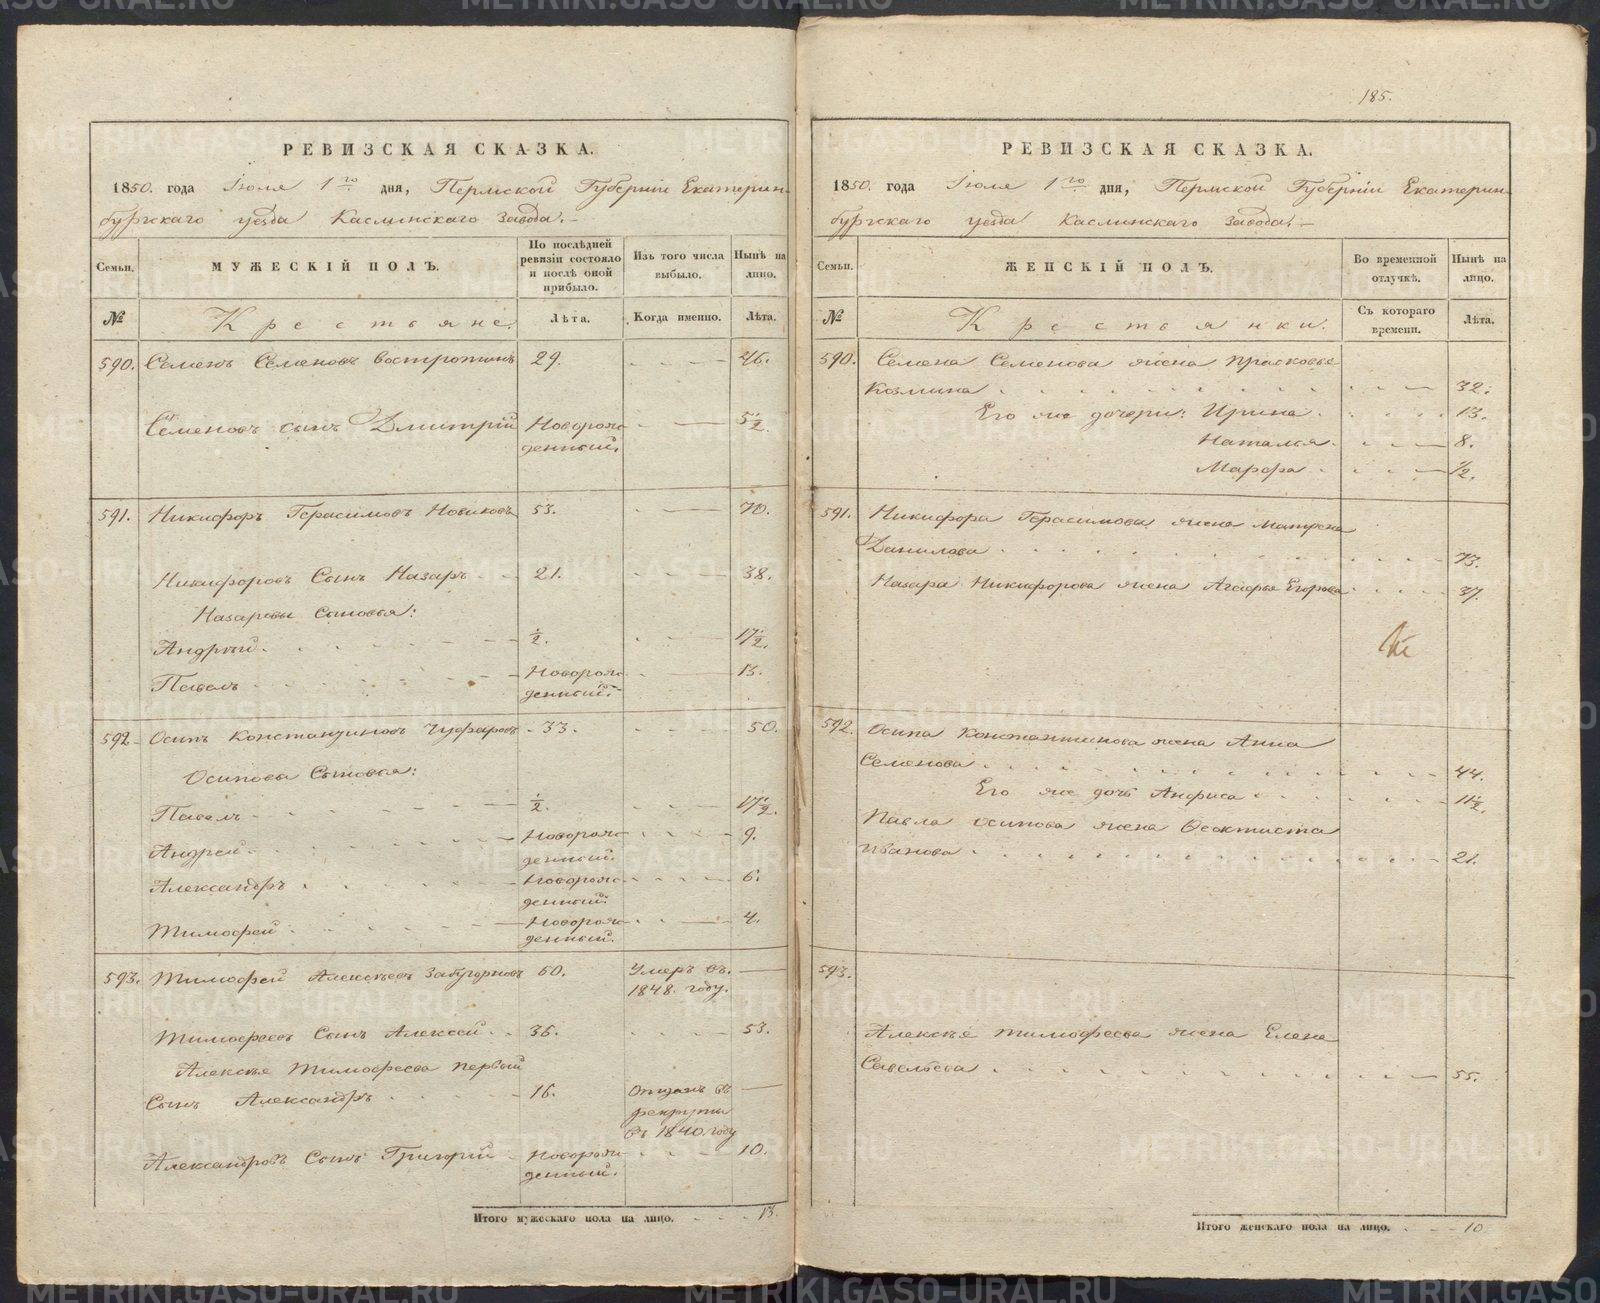 185.
РЕВИЗСКАЯ СКАЗКА.
1850. года Іюля 1го дня, Пермской Губерніи Екатерин-
бургскаго уѣзда Каслинскаго Завода.
Семьи.
МУЖЕСКІЙ ПОЛЪ.
По послѣдней ревизіи состояло и послѣ оной прибыло.
Изъ того числа выбыло.
Нынѣ на лицо.
№
Крестьяне.
Лѣта.
Когда именно.
Лѣта.
590. Семенъ Семеновъ Востротинъ 29. 46.
Семеновъ сынъ Дмитрій Новорож- 5½.
денный.
591. Никифоръ Герасимовъ Новиковъ 53. 70.
Никифоровъ Сынъ Назаръ 21. 38.
Назаровы Сыновья:
Андрей ½. 17½.
Павелъ Новорож- 13.
денный.
592. Осипъ Константиновъ Чуфаровъ 33. 50.
Осиповы Сыновья:
Павелъ ½. 17½.
Андрей Новорож- 9.
денный.
Александръ Новорож- 6.
денный.
Тимофей Новорож- 4.
денный.
593. Тимофей Алексѣевъ Забугорновъ 60. Умеръ въ
1848. году.
Тимофеевъ Сынъ Алексей 36. 53.
Алексѣя Тимофеева первый
Сынъ Александръ 16. Отданъ въ
рекруты
въ 1840. году
Александровъ Сынъ Григорій Новорож- 10.
денный.
Итого мужескаго пола на лицо. 13.
РЕВИЗСКАЯ СКАЗКА.
1850. года Іюля 1го дня, Пермской Губерніи Екатерин-
бургскаго уѣзда Каслинскаго Завода.
Семьи.
ЖЕНСКІЙ ПОЛЪ.
Во временной отлучкѣ.
Нынѣ на лицо.
№
Крестьянки.
Съ котораго времени.
Лѣта.
590. Семена Семенова жена Прасковья
Козмина 32.
Его же дочери: Ирина 13.
Наталья 8.
Марфа ½.
591. Никифора Герасимова жена Матрена
Данилова 73.
Назара Никифорова жена Агафья Егорова 37.
592. Осипа Константинова жена Анна
Семенова 44.
Его же дочь Анфиса 11½.
Павла Осипова жена Феоктиста
Иванова 21.
593.
Алексѣя Тимофеева жена Елена
Савельева 55.
Итого женскаго пола на лицо. 10
METRIKI.GASO-URAL.RU